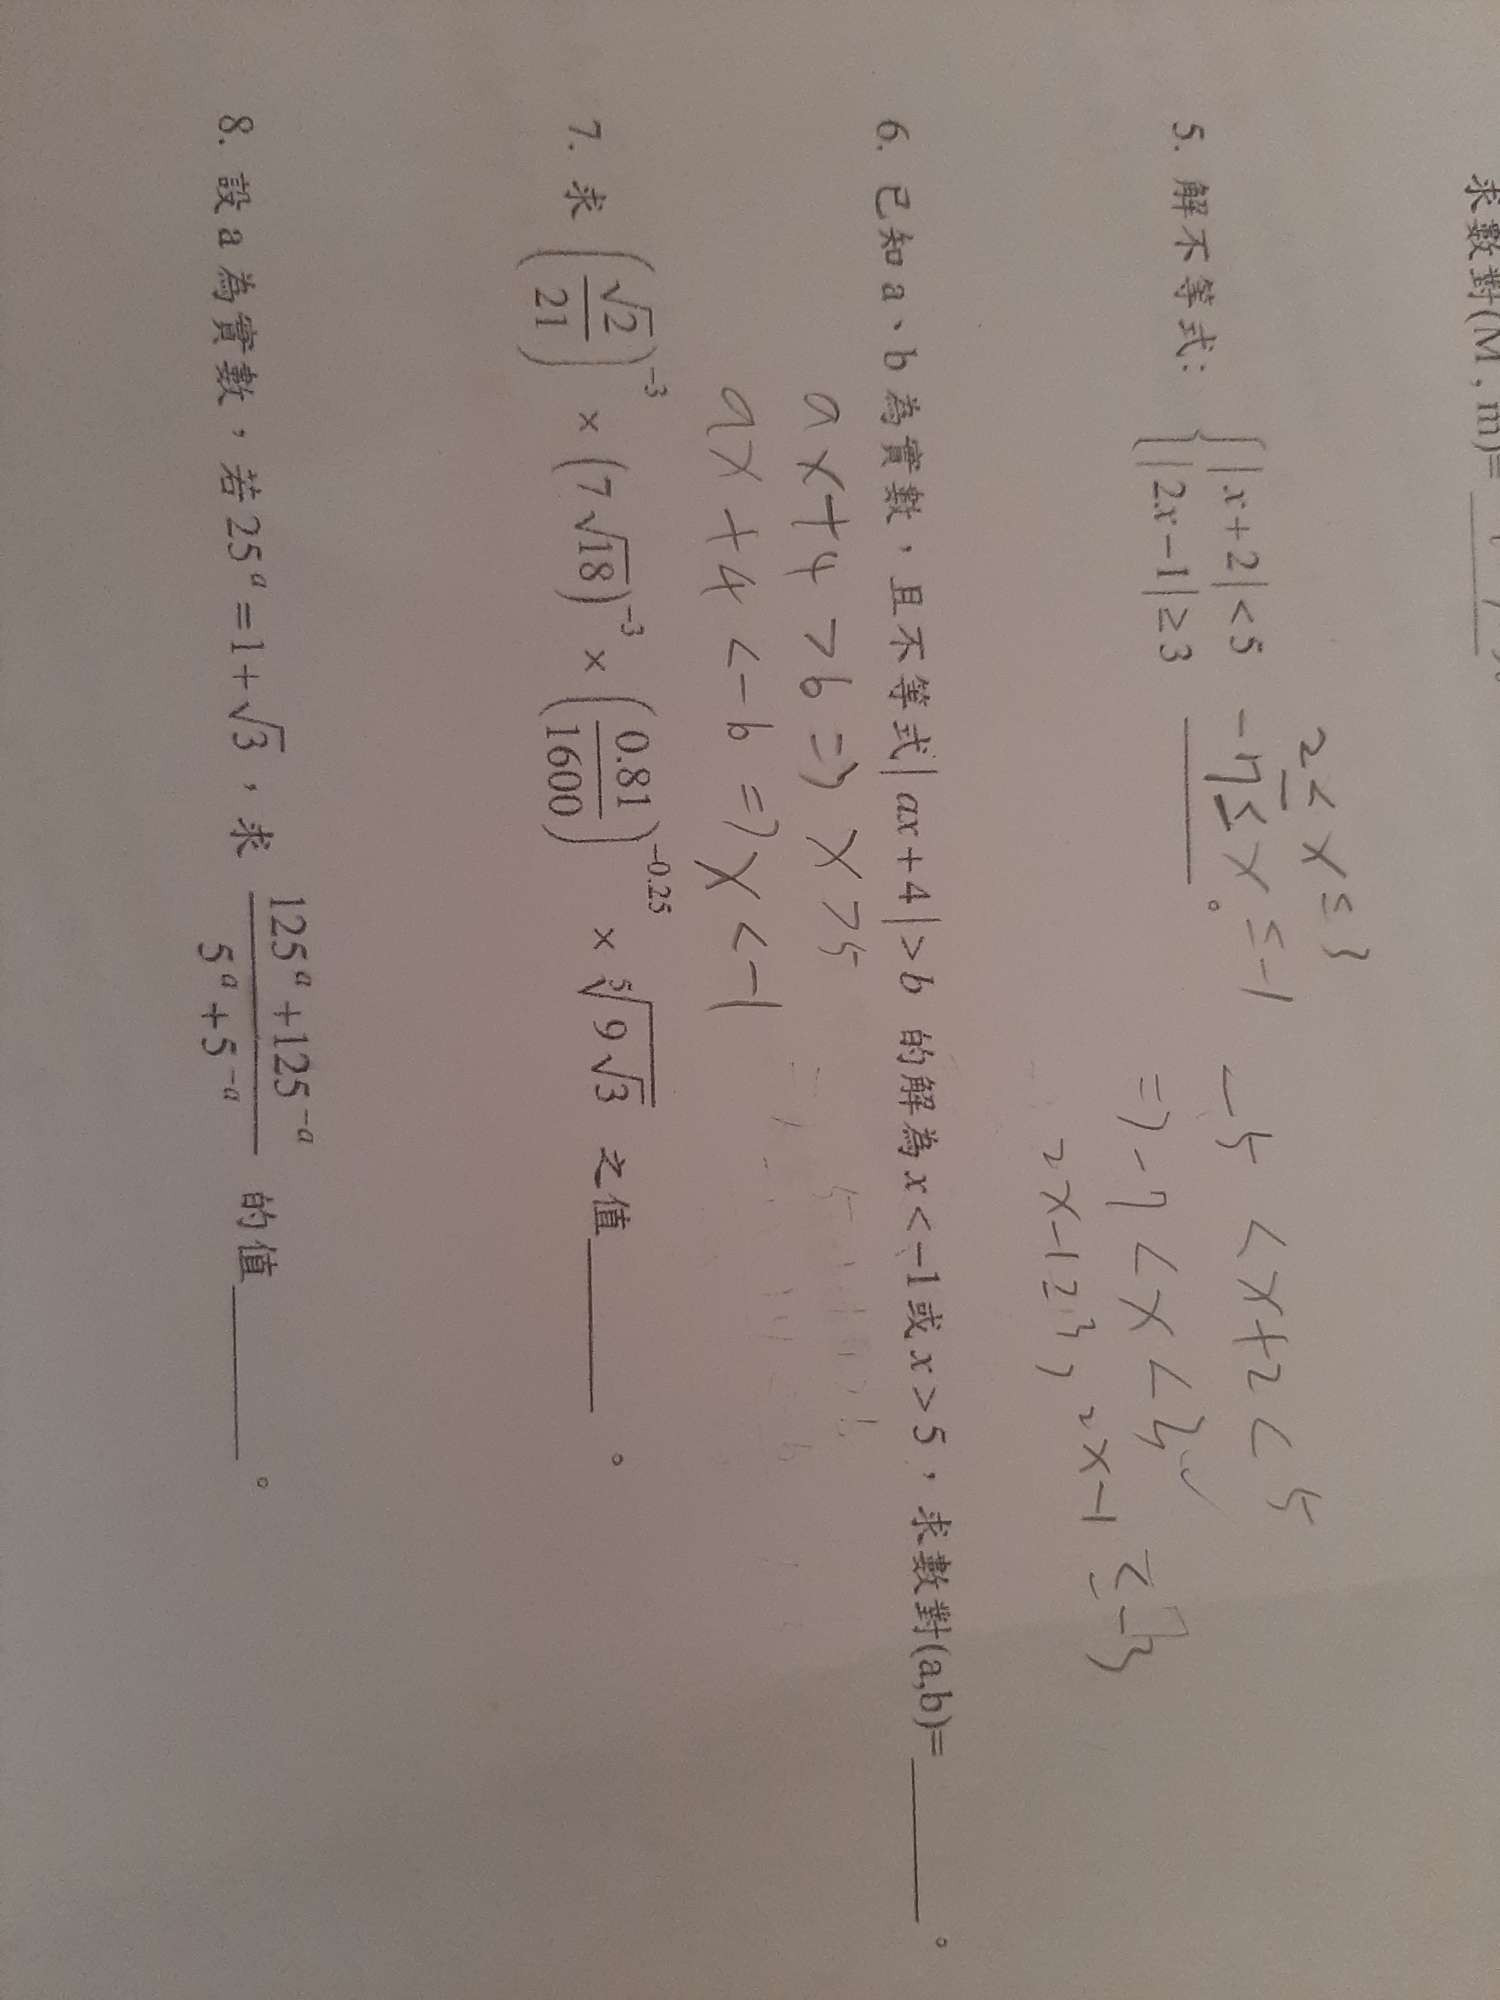 求數對(M , m)=
5. 解不等式: { |x+2|<5
|2x-1|≥3
2≤x≤3
-7≤x≤-1
。
-5<x+2<5
=>-7<x<3
2x-1≥3, 2x-1≥-3
6. 已知 a、b 為實數,且不等式|ax+4|>b 的解為 x<-1或 x>5,求數對(a,b)=______。
ax+4>b => x>5
ax+4<-b => x<-1
7. 求 (√2/21)^-3 × (7√18)^-3 × (0.81/1600)^-0.25 × ⁵√(9√3) 之值______。
8. 設 a 為實數,若 25^a=1+√3,求 (125^a+125^-a)/(5^a+5^-a) 的值______。